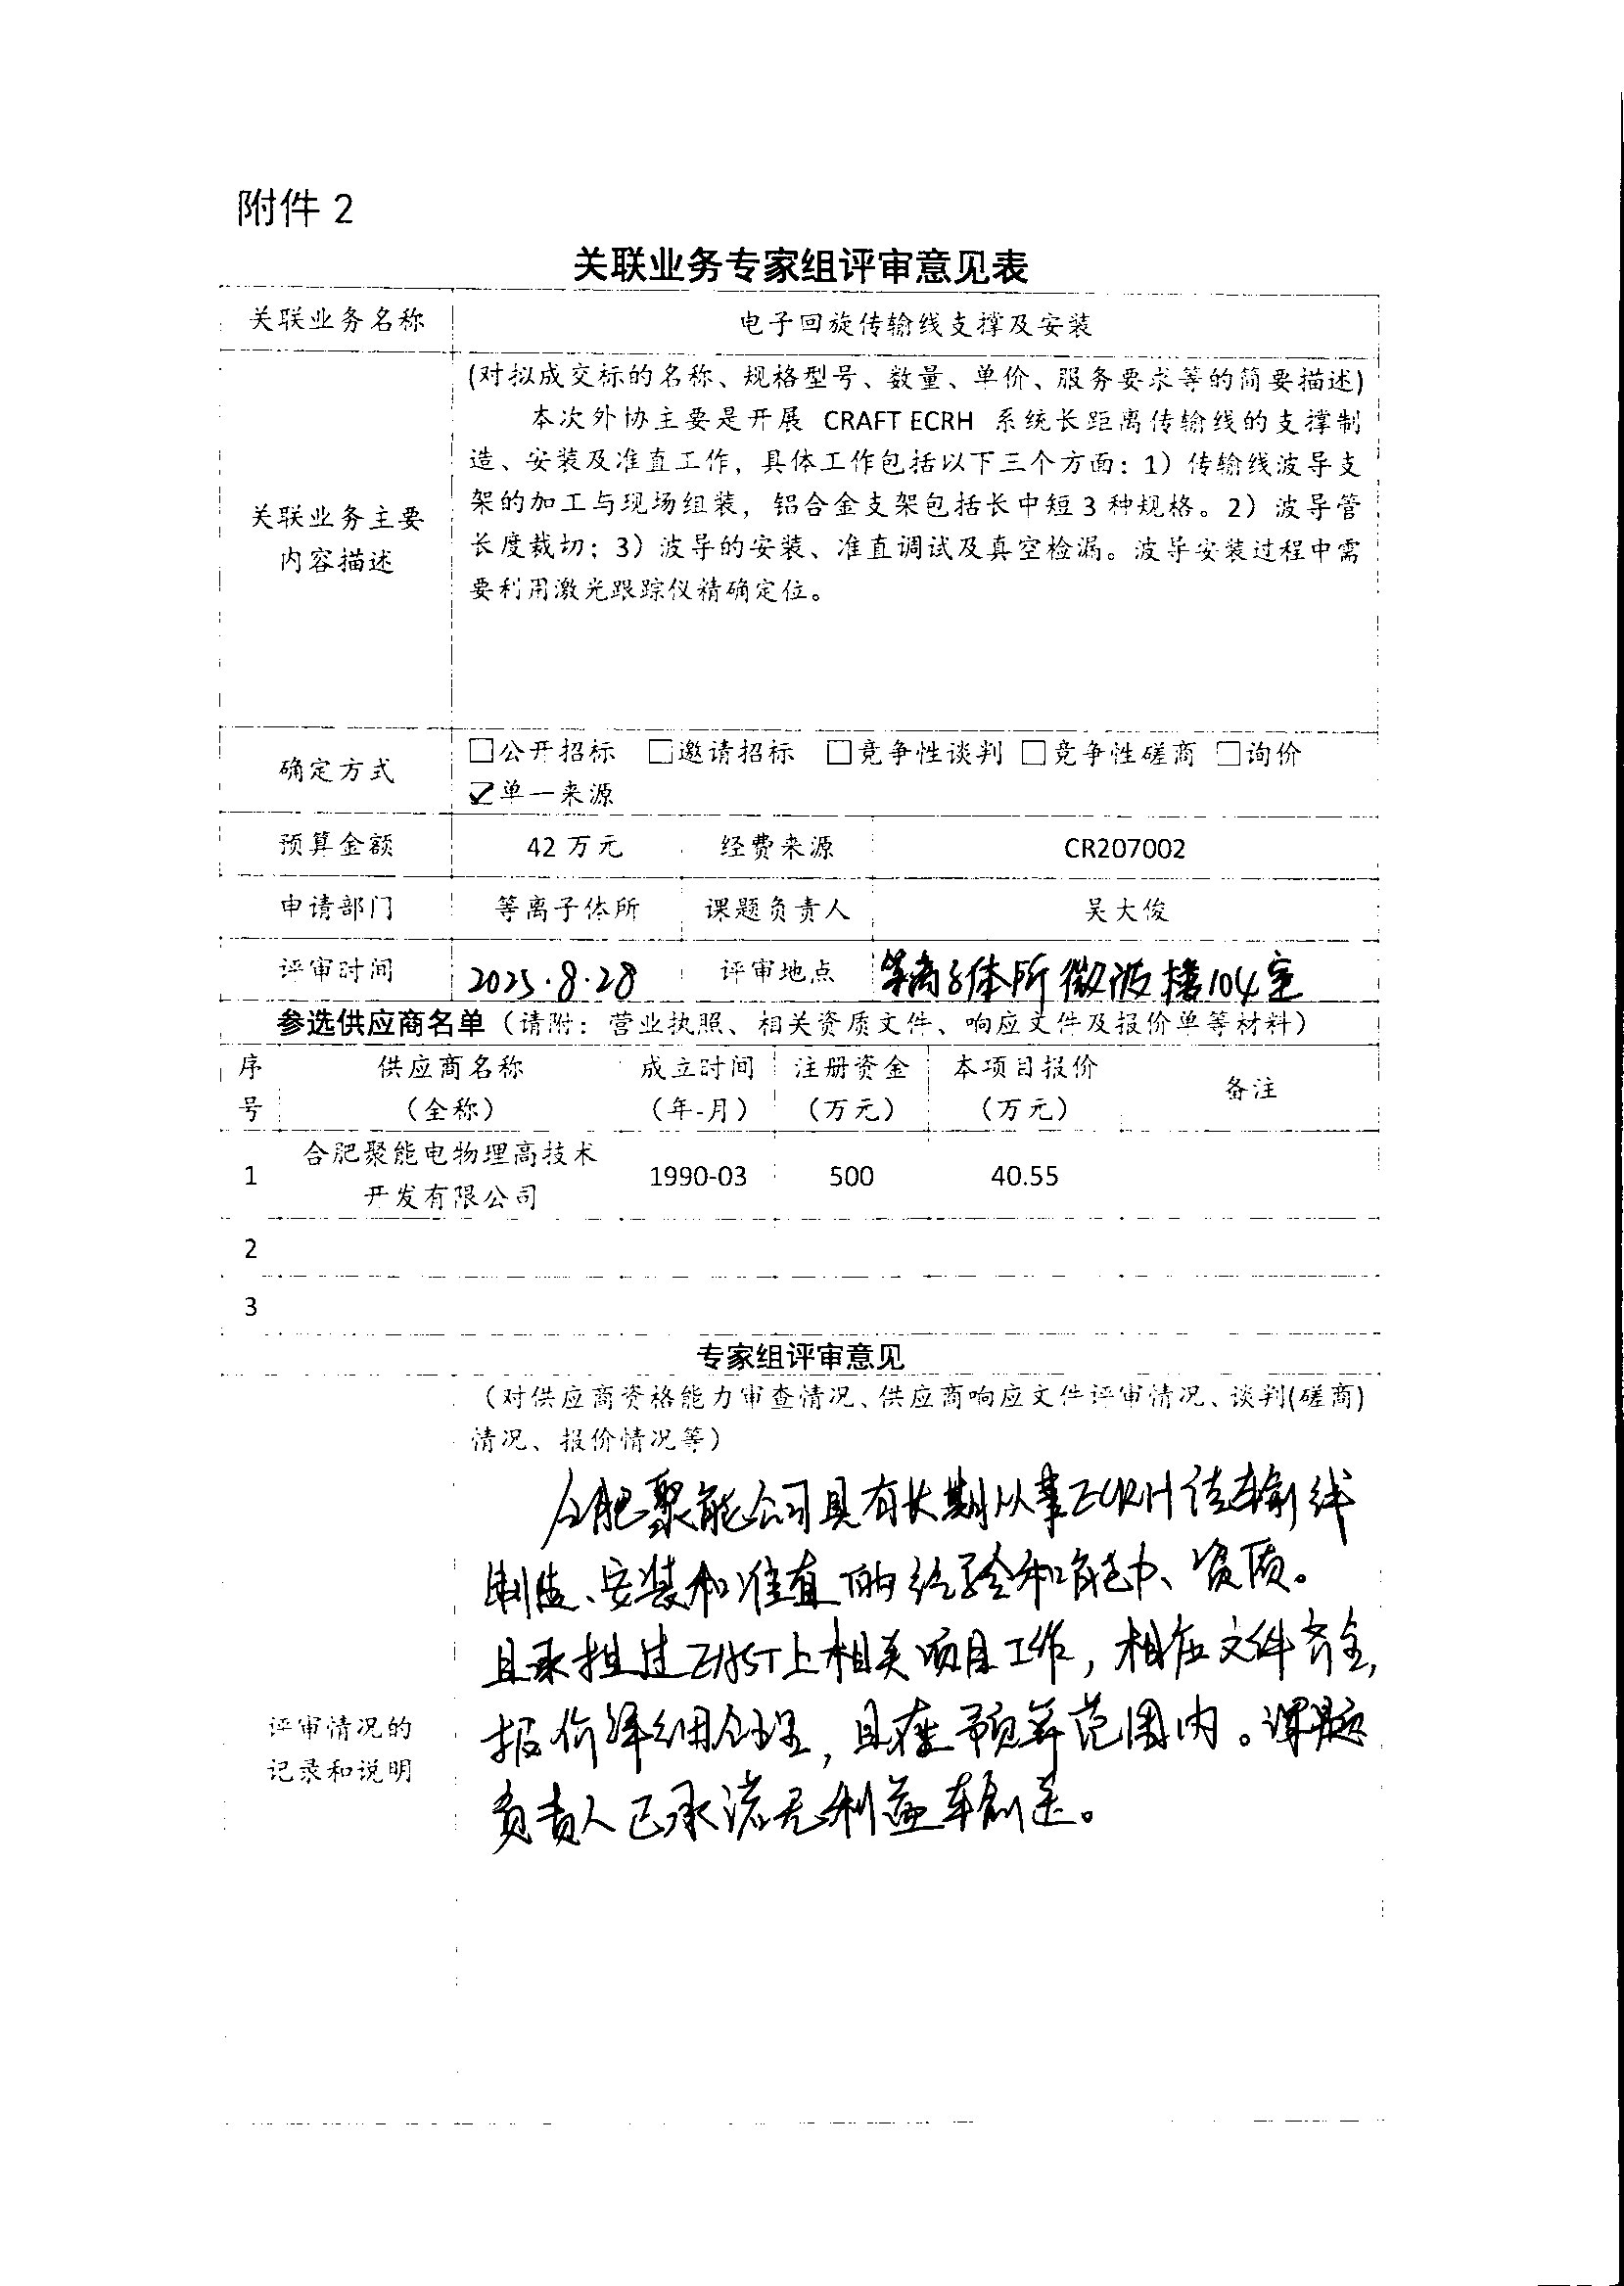 附件 2
关联业务专家组评审意见表
关联业务名称 电子回旋传输线支撑及安装
(对拟成交标的名称、规格型号、数量、单价、服务要求等的简要描述)
本次外协主要是开展 CRAFT ECRH 系统长距离传输线的支撑制
造、安装及准直工作，具体工作包括以下三个方面：1）传输线波导支
架的加工与现场组装，铝合金支架包括长中短 3 种规格。2）波导管
长度裁切；3）波导的安装、准直调试及真空检漏。波导安装过程中需
要利用激光跟踪仪精确定位。
关联业务主要
内容描述
确定方式
□公开招标 □邀请招标 □竞争性谈判 □竞争性磋商 □询价
☑单一来源
预算金额 42 万元 经费来源 CR207002
申请部门 等离子体所 课题负责人 吴大俊
评审时间 2025.8.28 评审地点 等离子体所微波楼104室
参选供应商名单（请附：营业执照、相关资质文件、响应文件及报价单等材料）
序号 供应商名称（全称） 成立时间（年-月） 注册资金（万元） 本项目报价（万元） 备注
1 合肥聚能电物理高技术开发有限公司 1990-03 500 40.55
2
3
专家组评审意见
（对供应商资格能力审查情况、供应商响应文件评审情况、谈判(磋商)
情况、报价情况等）
合肥聚能公司具有长期从事ECRH传输线
制造、安装和准直的经验和能力、资质。
且承担过EAST上相关项目工作，相应文件齐全，
报价详细合理，且在预算范围内。课题
负责人已承诺无利益输送。
评审情况的
记录和说明